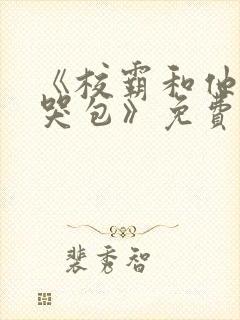 《校霸和他
哭包》免费
裴秀智